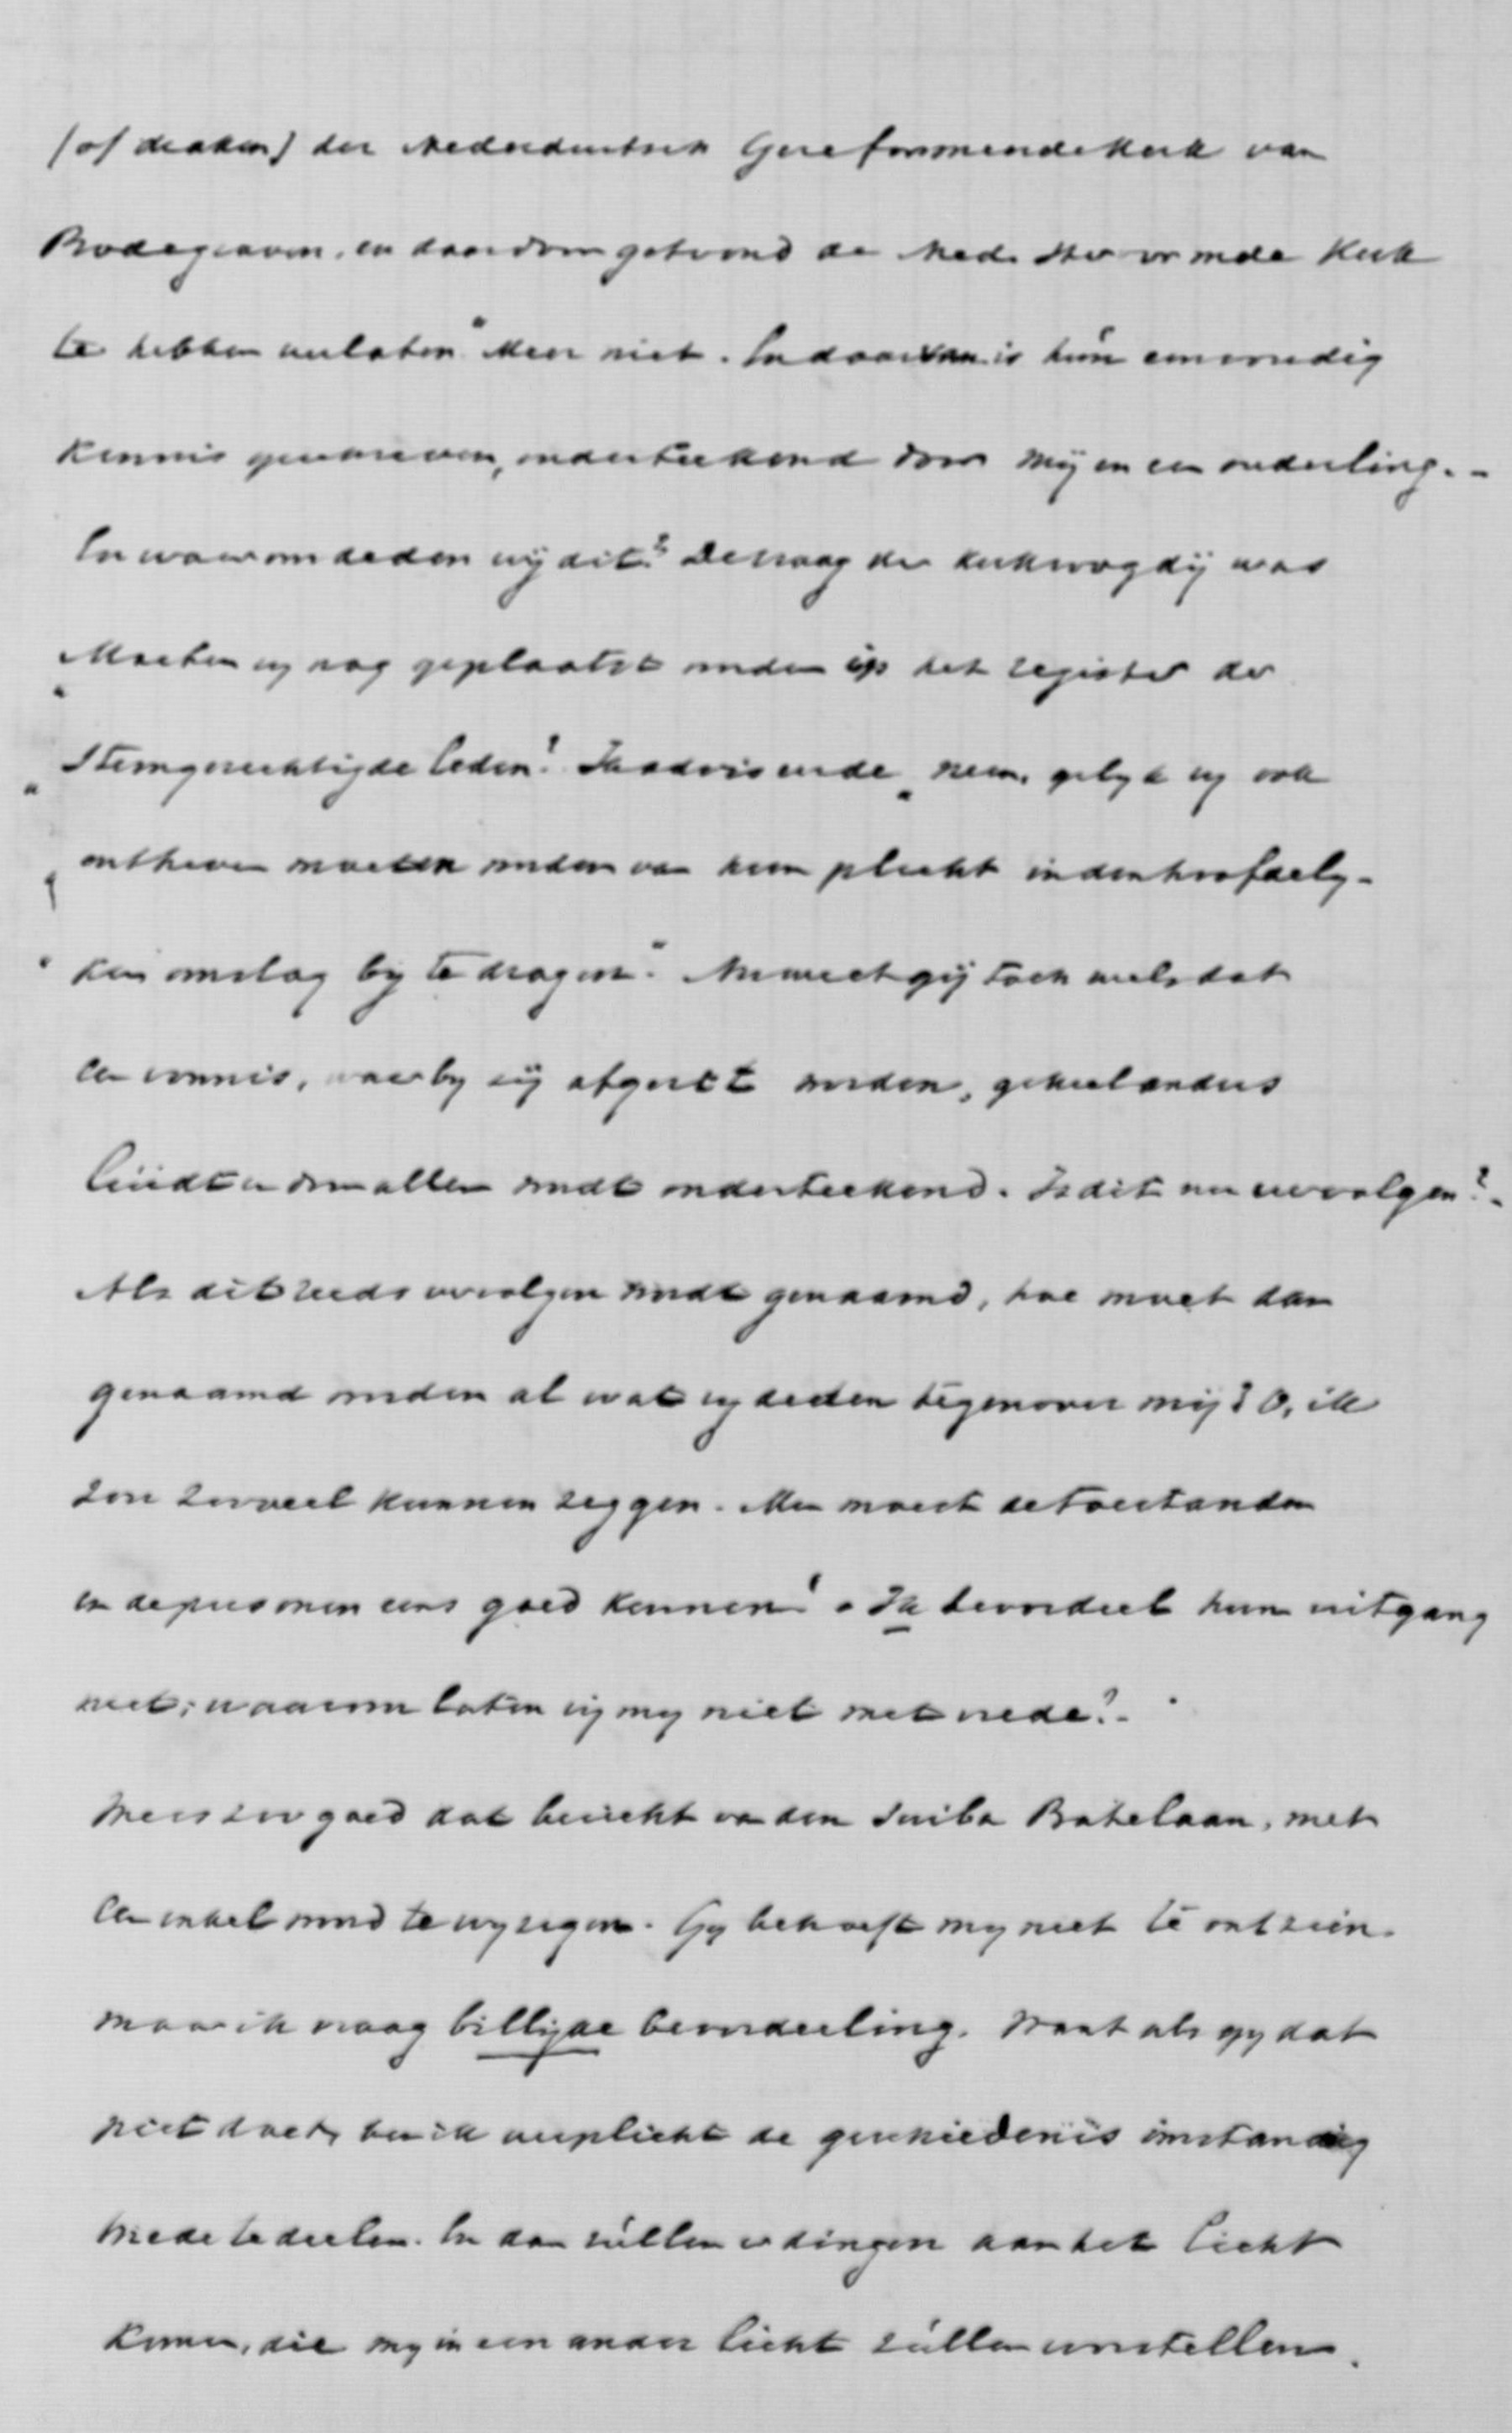 (of diaken) der Nederduitsch Gereformeerde Kerk van
Bodegraven, en daardoor getoond de Ned. Hervormde Kerk
te hebben verlaten". Meer niet. En daarvan is hún eenvoudig
kennis gegeven, onderteekend door mij en een ouderling. -
En waarom deden wij dit? De vraag der kerkvoogdij was
„Moeten zij nog geplaatst worden op het register der
„Stemgerechtigde leden?" Ik adviseerde „neen, gelijk zij ook
„ontheven moeten worden van hun plicht in den hoofdelij-
„ken omslag bij te dragen". Nu weet gij toch wel, dat
een vonnis, waarbij zij afgezet worden, geheel anders
luidt en door allen wordt onderteekend. Is dit nu vervolgen? -
Als dit reeds vervolgen wordt genaamd, hoe moet dan
genaamd worden al wat zij deden tegenover mij? O, ik
zou zooveel kunnen zeggen. Men moest de toestanden
en de personen eens goed kennen! - Ik beoordeel hun uitgang
niet; waarom laten zij mij niet met vrede? -
Wees zoo goed dat bericht van den Scriba Batelaan, met
een enkel woord te wijzigen. Gij behoeft mij niet te ontzien.
maar ik vraag billijke beoordeeling. Want als gij dat
niet doet, ben ik verplicht de geschiedenis omstandig
mede te deelen. En dan zullen er dingen aan het licht
komen, die mij in een ander licht zullen voorstellen.